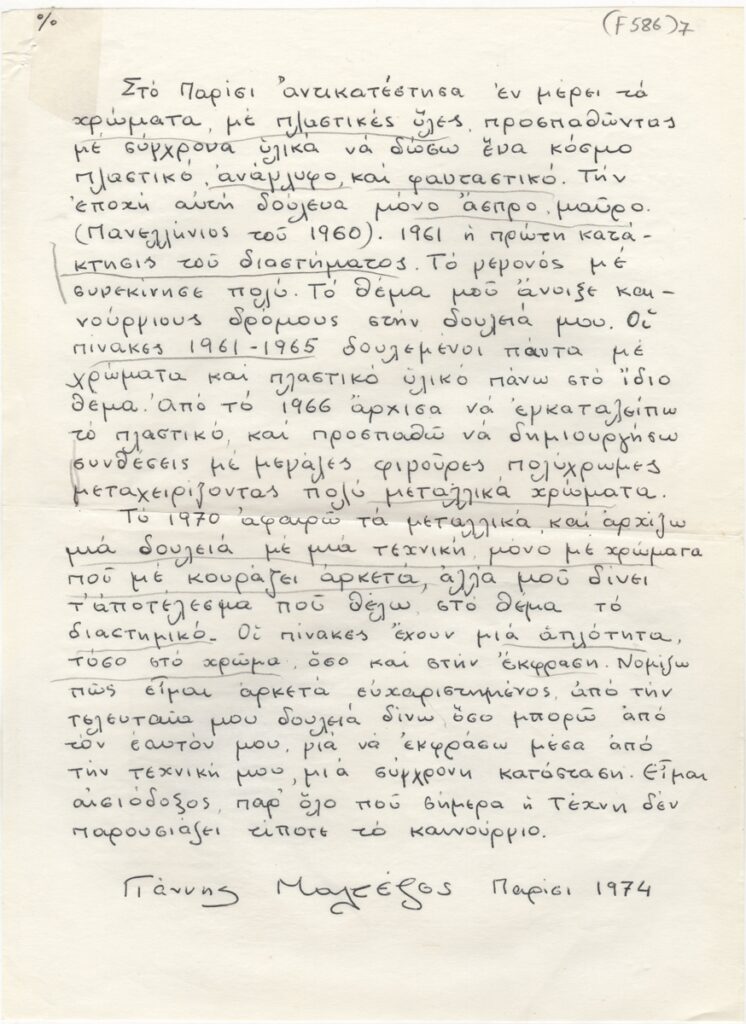 %
(F586)7
Στό Παρίσι ἀντικατέστησα ἐν μέρει τά
χρώματα, μέ πλαστικές ὕλες, προσπαθώντας
μέ σύγχρονα ὑλικά νά δώσω ἕνα κόσμο
πλαστικό, ἀνάγλυφο, καί φανταστικό. Τήν
ἐποχή αὐτή δούλευα μόνο ἄσπρο, μαῦρο.
(Πανελλήνιος τοῦ 1960). 1961 ἡ πρώτη κατά-
κτησις τοῦ διαστήματος. Τό γεγονός μέ
συνεκίνησε πολύ. Τό θέμα μοῦ ἄνοιξε και-
νούργιους δρόμους στήν δουλειά μου. Οἱ
πίνακες 1961-1965 δουλεμένοι πάντα μέ
χρώματα καί πλαστικό ὑλικό πάνω στό ἴδιο
θέμα. Ἀπό τό 1966 ἄρχισα νά ἐγκαταλείπω
τό πλαστικό, καί προσπαθῶ νά δημιουργήσω
συνθέσεις μέ μεγάλες φιγοῦρες πολύχρωμες
μεταχειρίζοντας πολύ μεταλλικά χρώματα.
Τό 1970 ἀφαιρῶ τά μεταλλικά, καί ἀρχίζω
μιά δουλειά μέ μιά τεχνική, μόνο μέ χρώματα
πού μέ κουράζει ἀρκετά, ἀλλά μοῦ δίνει
τ'ἀποτέλεσμα πού θέλω, στό θέμα τό
διαστημικό. Οἱ πίνακες ἔχουν μιά ἁπλότητα,
τόσο στό χρῶμα, ὅσο καί στήν ἔκφραση. Νομίζω
πώς εἶμαι ἀρκετά εὐχαριστημένος, ἀπό τήν
τελευταία μου δουλειά δίνω ὅσο μπορῶ ἀπό
τόν ἑαυτόν μου, γιά νά ἐκφράσω μέσα ἀπό
τήν τεχνική μου, μιά σύγχρονη κατάσταση. Εἶμαι
αἰσιόδοξος, παρ' ὅλο πού σήμερα ἡ Τέχνη δέν
παρουσιάζει τίποτε τό καινούργιο.
Γιάννης Μαλτέζος Παρίσι 1974